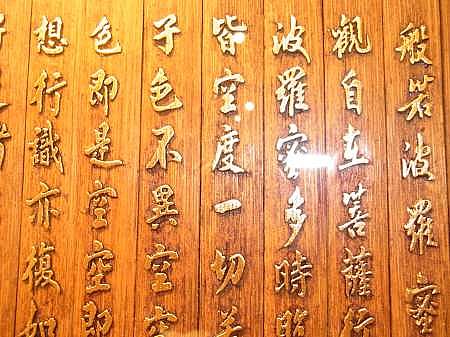 般若波羅蜜
觀自在菩薩行
波羅密多時照
皆空度一切苦
子色不異空空
色即是空空即
想行識亦復如